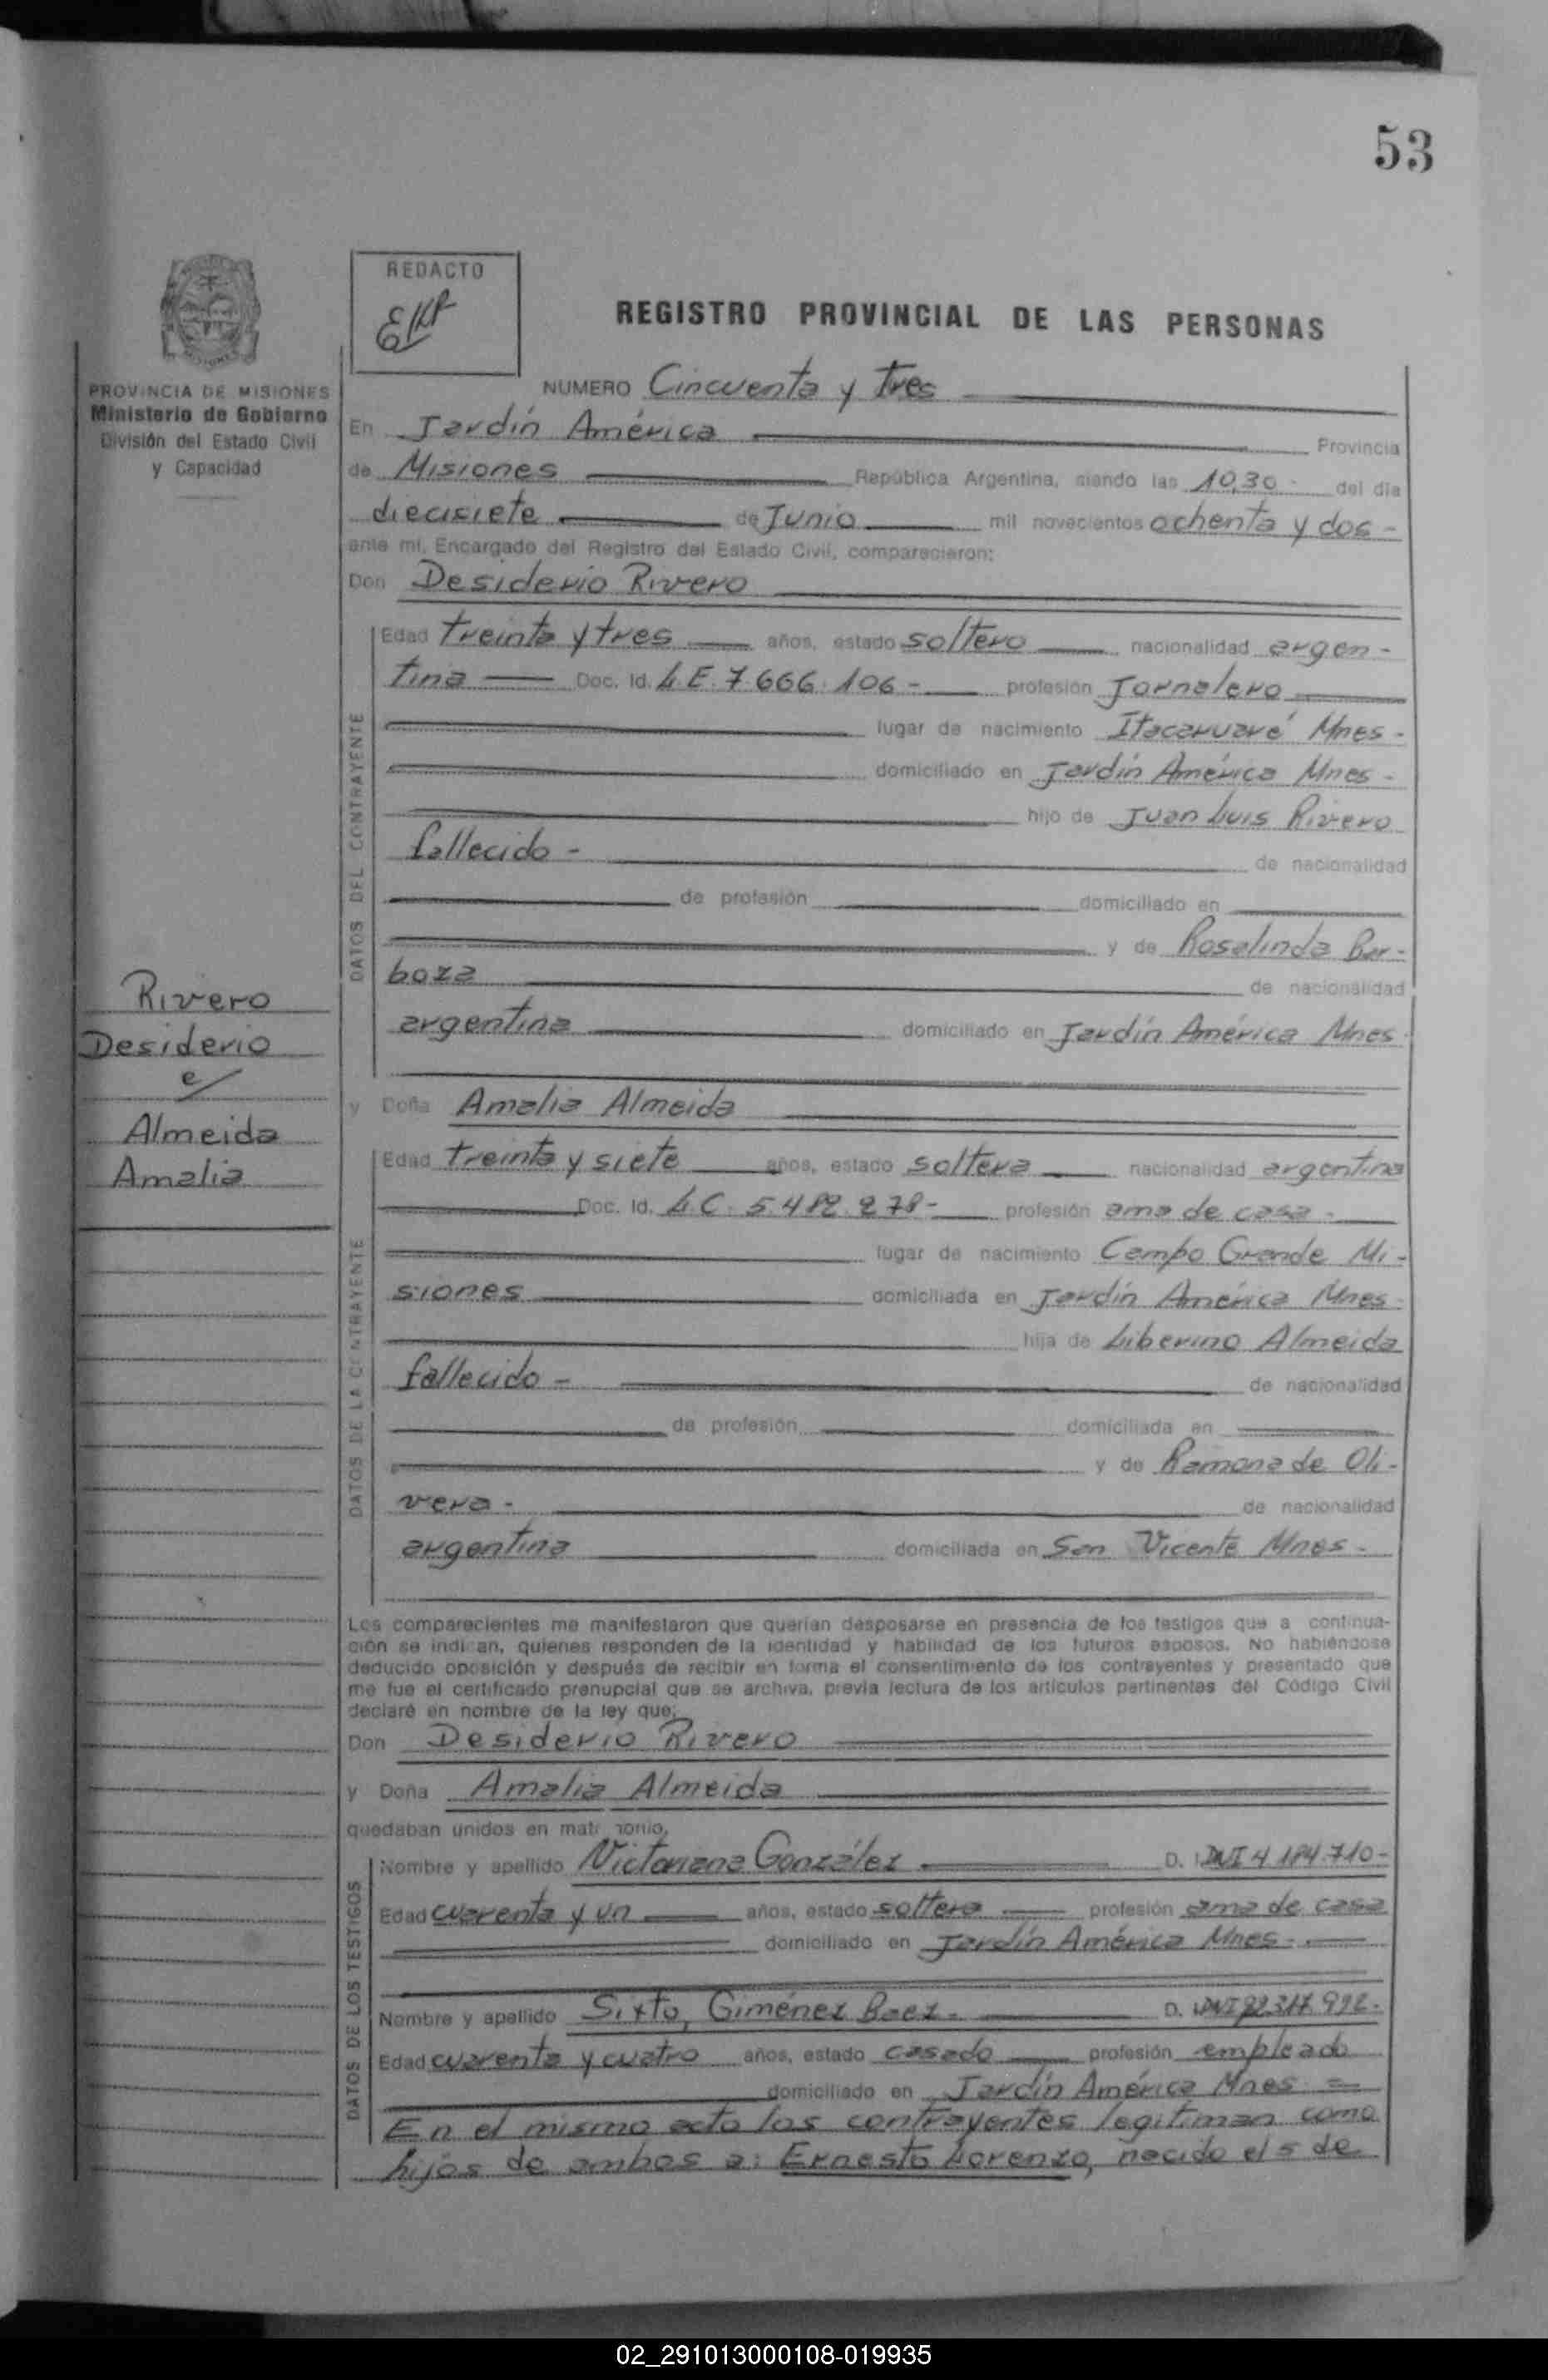 53
REDACTO
REGISTRO PROVINCIAL DE LAS PERSONAS
PROVINCIA DE MISIONES
Ministerio de Gobierno
División del Estado Civil
y Capacidad
NUMERO Cincuenta y tres
En Jardín América Provincia
de Misiones República Argentina, siendo las 10,30 del día
diecisiete de Junio mil novecientos ochenta y dos -
ante mi, Encargado del Registro del Estado Civil, comparecieron:
Don Desiderio Rivero
DATOS DEL CONTRAYENTE
Edad treinta y tres años, estado soltero nacionalidad argen-
tina Doc. Id. L.E. 7.666.106 - profesión Jornalero
lugar de nacimiento Itacaruaré Mnes -
domiciliado en Jardín América Mnes -
hijo de Juan Luis Rivero
fallecido - de nacionalidad
de profesión domiciliado en
y de Rosalinda Bar-
boza de nacionalidad
argentina domiciliado en Jardín América Mnes.
Rivero
Desiderio
c/
Almeida
Amalia
y Doña Amalia Almeida
DATOS DE LA CONTRAYENTE
Edad treinta y siete años, estado soltera nacionalidad argentina
Doc. Id. L.C. 5.482.278 - profesión ama de casa -
lugar de nacimiento Campo Grande Mi-
siones domiciliada en Jardín América Mnes.
hija de Liberino Almeida
fallecido - de nacionalidad
de profesión domiciliada en
y de Ramona de Oli-
vera - de nacionalidad
argentina domiciliada en San Vicente Mnes -
Los comparecientes me manifestaron que querían desposarse en presencia de los testigos que a continua-
ción se indican, quienes responden de la identidad y habilidad de los futuros esposos. No habiéndose
deducido oposición y después de recibir en forma el consentimiento de los contrayentes y presentado que
me fue el certificado prenupcial que se archiva, previa lectura de los artículos pertinentes del Código Civil
declaré en nombre de la ley que:
Don Desiderio Rivero
y Doña Amalia Almeida
quedaban unidos en matrimonio.
DATOS DE LOS TESTIGOS
Nombre y apellido Victoriana González D. I. DNI 4.184.710 -
Edad cuarenta y un años, estado soltera profesión ama de casa
domiciliado en Jardín América Mnes -
Nombre y apellido Sixto, Giménez Baez - D. I. DNI
Edad cuarenta y cuatro años, estado casado profesión empleado
domiciliado en Jardín América Mnes =
En el mismo acto los contrayentes legitiman como
hijos de ambos a: Ernesto Lorenzo, nacido el 5 de
02_291013000108-019935